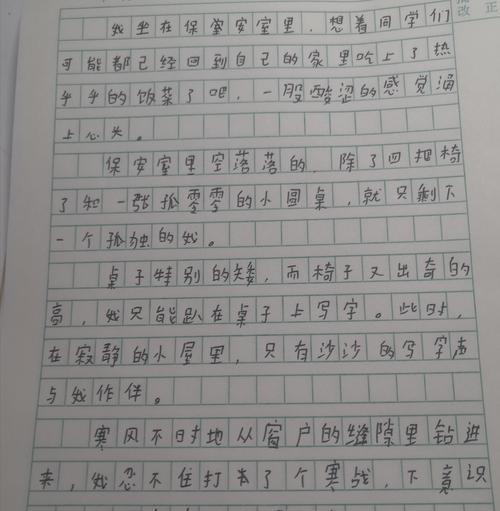 改 正
我坐在保安室里，想着同学们
可能都已经回到自己的家里吃上了热
乎乎的饭菜了吧，一股酸涩的感觉涌
上心头。
保安室里空落落的，除了四把椅
了和一张孤零零的小圆桌，就只剩下
一个孤独的我。
桌子特别的矮，而椅子又出奇的
高，我只能趴在桌子上写字。此时，
在寂静的小屋里，只有沙沙的写字声
与我作伴。
寒风不时地从窗户的缝隙里钻进
来，我忍不住打了个寒战，下意识